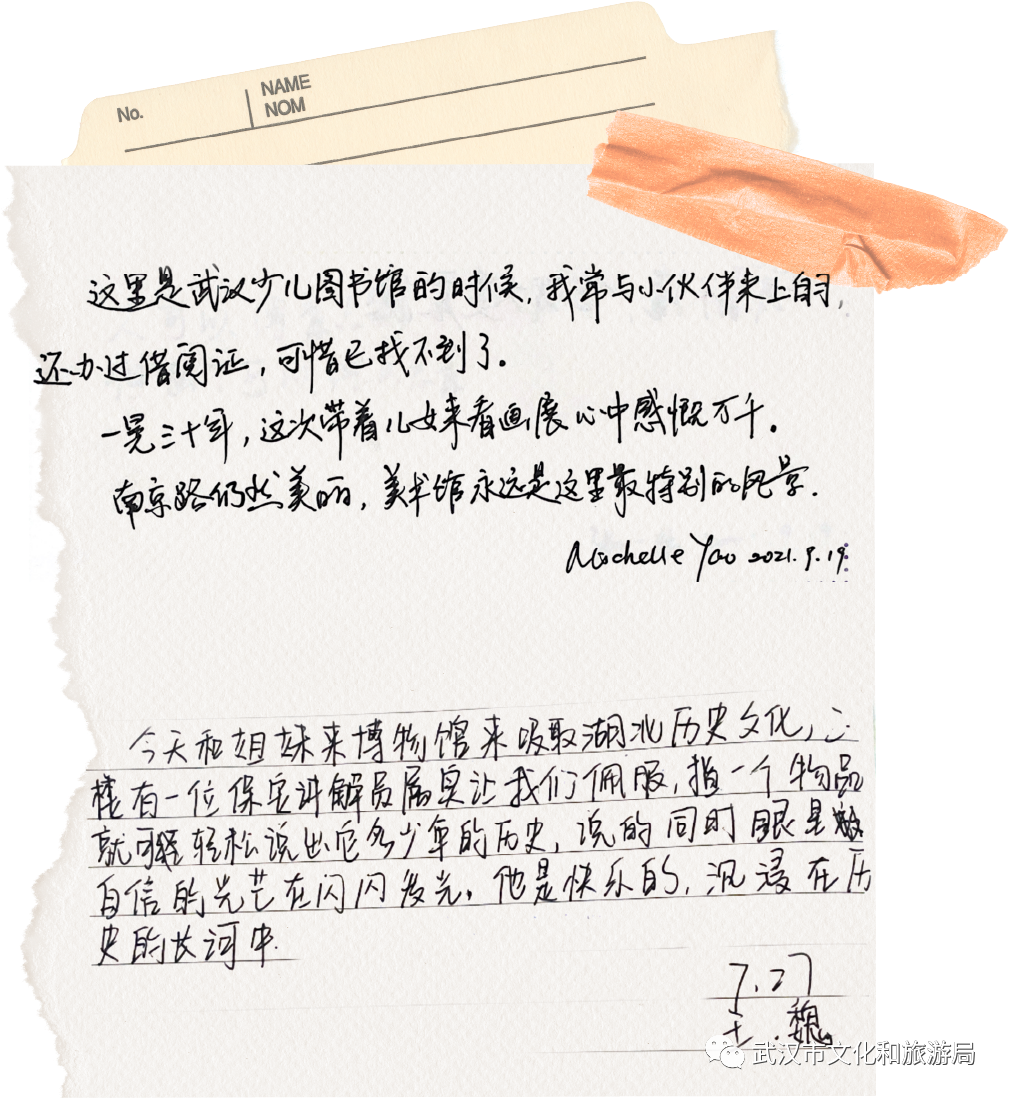 No.
NAME
NOM
这里是武汉少儿图书馆的时候,我常与小伙伴来上自习,
还办过借阅证,可惜已找不到了。
一晃三十年,这次带着儿女来看画展心中感慨万千。
南京路仍然美丽,美术馆永远是这里最特别的风景.
Michelle Yao 2021.9.19
今天和姐妹来博物馆来吸取湖北历史文化,二
楼有一位保安讲解员属实让我们佩服,指一个物品
就可轻松说出它多少年的历史,说的同时眼里
自信的光芒在闪闪发光,他是快乐的,沉浸在历
史的长河中.
7.27
魏
武汉市文化和旅游局